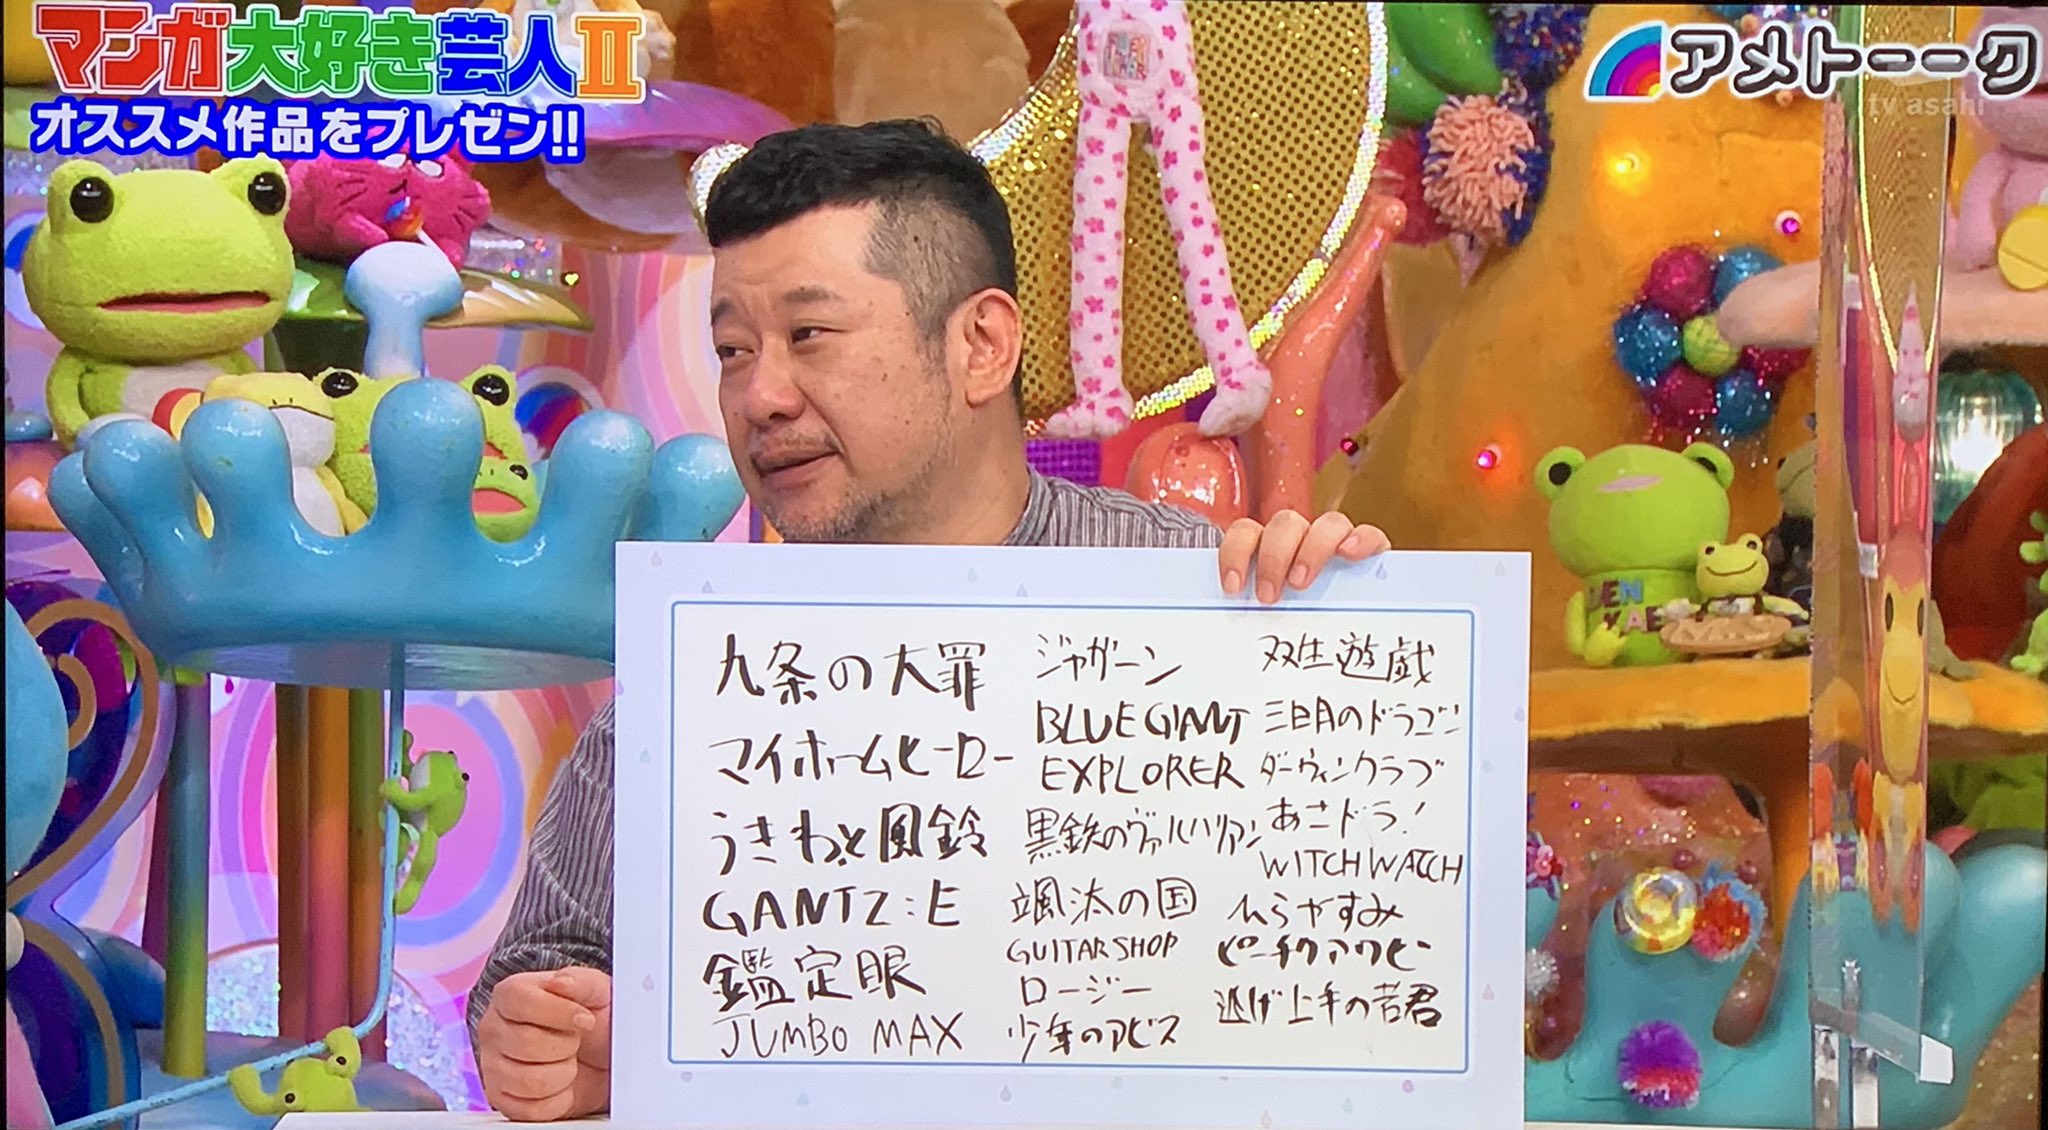 マンガ大好き芸人II
オススメ作品をプレゼン!!
アメトーーク
tv asahi
九条の大罪
マイホームヒーロー
うきわと風鈴
GANTZ:E
鑑定眼
JUMBO MAX
ジャガーン
BLUE GIANT
EXPLORER
黒鉄のヴァルハリアン
颯汰の国
GUITAR SHOP
ロージー
少年のアビス
双生遊戯
三日月のドラゴン
ダーウィンクラブ
あさドラ!
WITCH WATCH
ひらやすみ
ピーチクアワビー
逃げ上手の若君